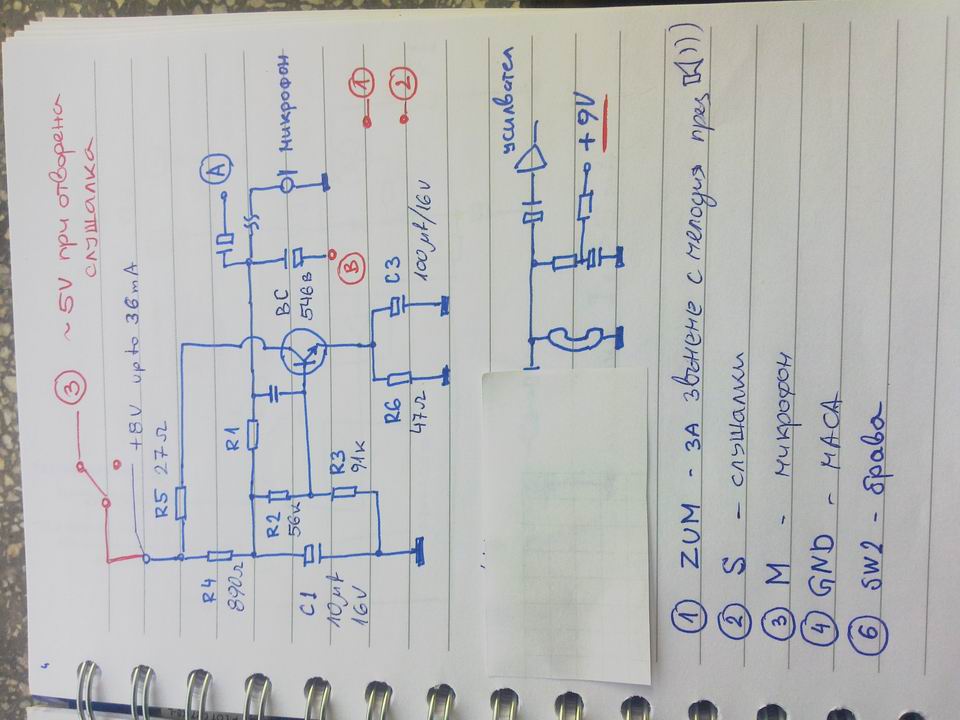 4
~ 5V при отворена
слушалка
3
+8V up to 36mA
A
R5 27Ω
R4
890Ω
R1
микрофон
BC
546B
B
1
2
R2
56k
R3
91k
C1
10μf
16V
R6
47Ω
C3
100μf/16V
усилвател
+9V
1 ZUM - за звънене с мелодия през
2 S - слушалки
3 M - микрофон
4 GND - маса
6 SW2 - брава